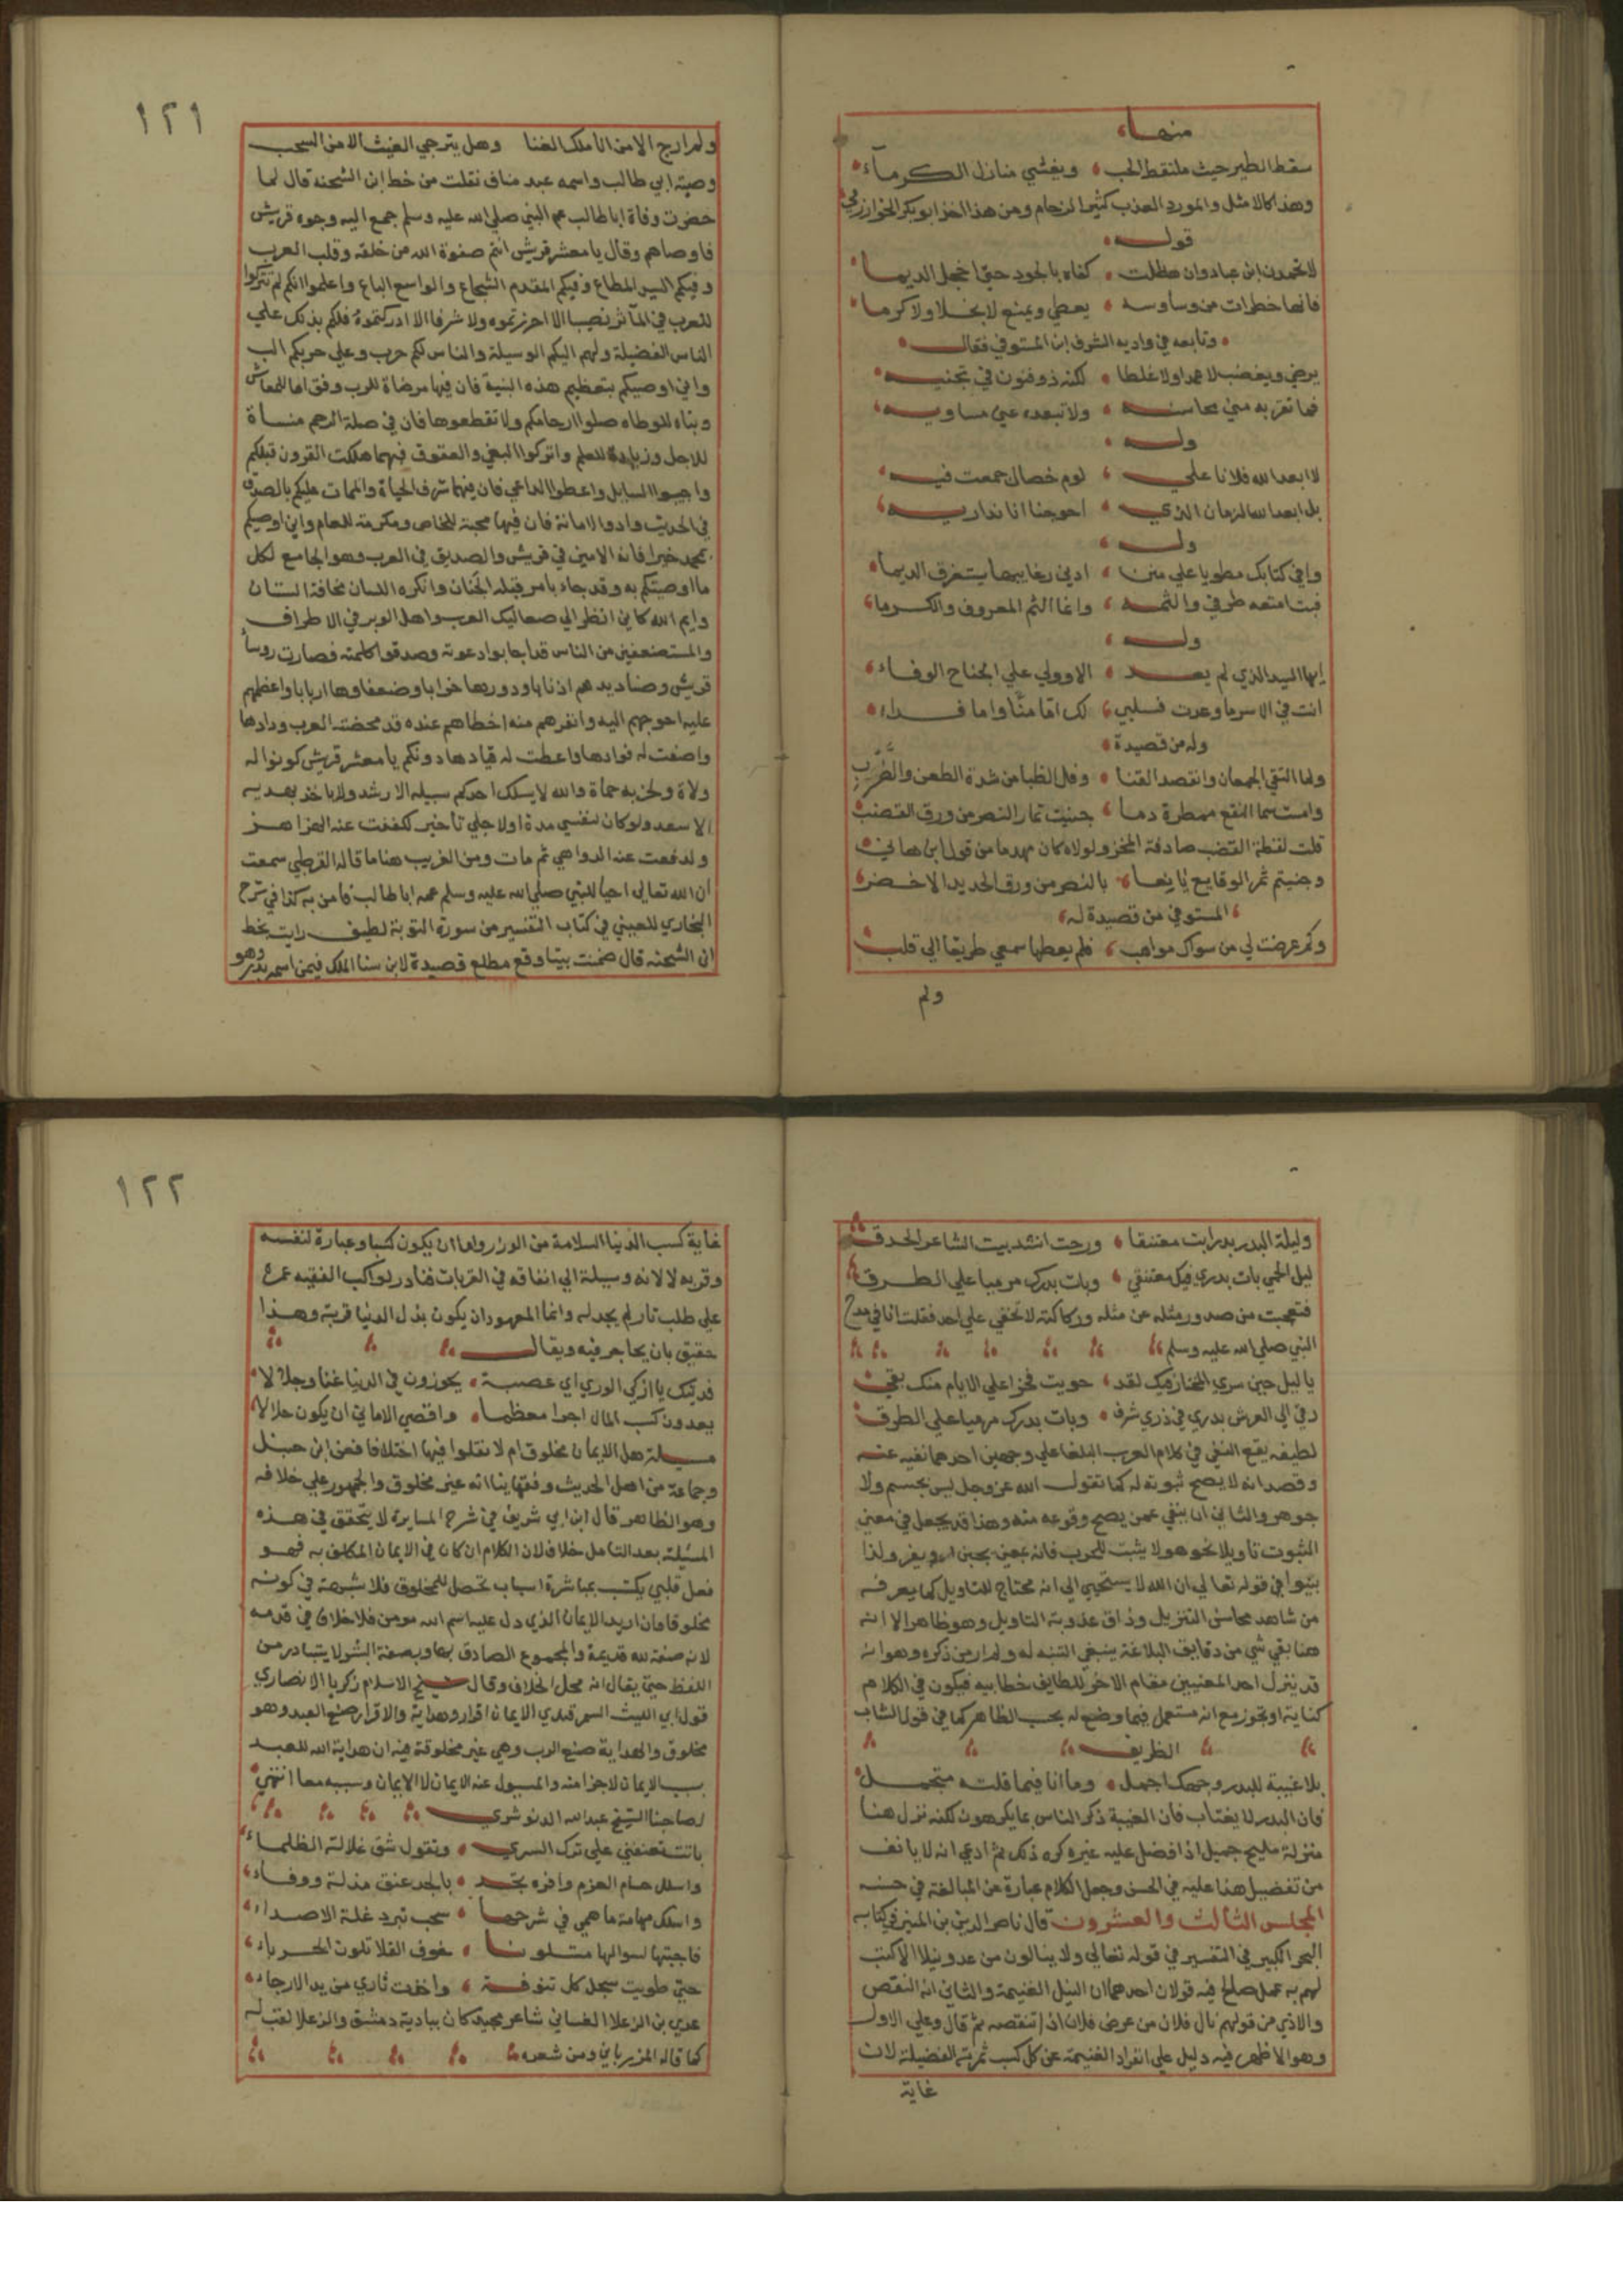 منها
سقط الطير حيث ملتقط الحب وبغشي منازل الكرمآء
وهذا كالامثل والمورد العذب كثير الزحام ومن هذا اخذ ابو بكر الخوارزمي
قوله
لا تحمدن ابن عباد وان هطلت كفاه بالجود حتى اخجل الديما
فانها خطرات من وساوسه يعطي ويمنع لا بخلا ولا كرما
وتابعه في واديه الشرف ابن المستوفي فقال
يرضي ويغضب لا عمدا ولا غلطا لكنه ذو فنون في تجنيه
فما تقربه مني محاسنه ولا تبعده عني مساويه
وله
لا ابعد الله فلانا علي لوم خصال جمعت فيه
بل ابعد الله الزمان الذي احوجنا انا نداريه
وله
وافي كتابك مطويا علي منن ادني رغايبها يستغرق الديما
فبت امتعه طرفي والثمه وانما الثم المعروف والكرما
وله
ايها السيد الذي لم يعد الا وولي علي الجناح الوفاء
انت في الاسر ما وعدت فسلبي لك اما منّا واما فداء
وله من قصيدة
ولما التقي الجمعان وانقصد القنا وفل الظبا من شدة الطعن والضرب
وامست سما النقع ممطرة دما جنيت ثمار النصر من ورق القضب
قلت لفظة القضب صادفة المخز ولولاه كان مهدما من قول ابن هاني
وجنيتم ثمر الوقايع يانعا بالنصر من ورق الحديد الاخضر
المستوفي من قصيدة له
وكم عرضت لي من سواك مواهب فلم يعطها سمعي طريقا الي قلب
ولم
١٢١
ولم ارج الا من انا ملك الغنا وهل يترجي الغيث الا من السحب
وصية ابي طالب واسمه عبد مناف نقلت من خط ابن الشحنه قال لما
حضرت وفاة ابا طالب عم النبي صلي الله عليه وسلم جمع اليه وجوه قريش
فاوصاهم وقال يا معشر قريش انتم صفوة الله من خلقه وقلب العرب
وفيكم السيد المطاع وفيكم المقدم الشجاع والواسع الباع واعلموا انكم لم تتركوا
للعرب في المآثر نصيبا الا احرزتموه ولا شرفا الا ادركتموه فلكم بذلك علي
الناس الفضيلة ولهم اليكم الوسيلة والناس لكم حرب وعلي حربكم الب
واني اوصيكم بتعظيم هذه البنية فان فيها مرضاة للرب وقواما للمعاش
وثباتا للوطاه صلوا ارحامكم ولا تقطعوها فان في صلة الرحم منساة
للاجل وزيادة للعلم واتركوا البغي والعقوق فبهما هلكت القرون قبلكم
واجيبوا السايل واعطوا الداعي فان فيهما شرف الحياة والممات عليكم بالصدق
في الحديث وادوا الامانة فان فيها محبة للخاص ومكرمة للعام واني اوصيكم
بمحمد خيرا فانه الامين في قريش والصديق في العرب وهو الجامع لكل
ما اوصيتكم به وقد جاء بامر قبله الجنان وانكره اللسان مخافة الشنان
وايم الله كاني انظر الي صعاليك العرب واهل الوبر في الاطراف
والمستضعفين من الناس قد اجابوا دعوته وصدقوا كلمته فصارت روسا
قريش وصناديدهم اذنابا ودورها خرابا وضعفاوها اربابا واعظمهم
عليه احوجهم اليه وانفرهم منه اخطاهم عنده قد محضته العرب ودادها
واصفت له فوادها واعطت له قيادها دونكم يا معشر قريش كونوا له
ولاة ولحزبه حماة والله لا يسلك احدكم سبيله الا رشد ولا ياخذ بهديه
الا سعد ولو كان لنفسي مدة او لاجلي تاخير لكففت عنه الهزاهز
ولدفعت عنه الدواهي ثم مات ومن الغريب هنا ما قاله القرطبي سمعت
ان الله تعالي احيا للنبي صلي الله عليه وسلم عمه ابا طالب فامن به كذا في شرح
البخاري للعيني في كتاب التفسير من سورة التوبة لطيف رايت بخط
ابن الشحنه قال ضمنت بيتا وقع مطلع قصيدة لابن سنا الملك فيمن اسمه بدر وهو
وليلة البدر بدرا بت معتنقا ورحت انشد بيت الشاعر الحدق
ليل الحمي بات بدري فيك معتنقي وبات بدرك مرميا علي الطرق
فتعجبت من صدور مثله عن مثله وركاكته لا تخفي علي احد فقلت انا في مدح
النبي صلي الله عليه وسلم
يا ليل حين سري المختار فيك لقد حويت فخرا علي الايام منك بقي
رقي الي العرش بدري في ذري شرف وبات بدرك مرميا علي الطرق
لطيفه يقع النفي في كلام العرب البلغا علي وجهين احدهما نفيه عنه
وقصد انه لا يصح ثبوته له كما تقول الله عز وجل ليس بجسم ولا
جوهر والثاني ان ينفي عمن يصح وقوعه منه وهذا قد يجعل في معني
الثبوت تاويلا نحو هو لا يثبت للحرب فانه بمعني يجبن او يفر ولذا
بينوا في قوله تعالي ان الله لا يستحيي الي انه محتاج للتاويل كما يعرفه
من شاهد محاسن التنزيل وذاق عذوبة التاويل وهو ظاهر الا انه
هنا بقي شي من دقايق البلاغة ينبغي التنبه له ولم ار من ذكره وهو انه
قد ينزل احد المعنيين مقام الاخر للطايف خطابيه فيكون في الكلام
كناية او تجوز مع انه مستعمل فيما وضع له بحسب الظاهر كما في قول الشاب
الظريف
بلا غيبة للبدر وجهك اجمل وما انا فيما قلته متجمل
فان البدر لا يغتاب فان الغيبة ذكر الناس بما يكرهون لكنه نزل هنا
منزلة مليح جميل اذا فضل عليه غيره كره ذلك ثم ادعي انه لا يانف
من تفضيل هذا عليه في الحسن وجعل الكلام عبارة عن المبالغة في حسنه
المجلس الثالث والعشرون قال ناصر الدين بن المنير في كتابه
البحر الكبير في التفسير في قوله تعالي ولا ينالون من عدو نيلا الا كتب
لهم به عمل صالح فيه قولان احدهما ان النيل الغنيمة والثاني انه النقص
والاذي من قولهم نال فلان من عرض فلان اذا تنقصه ثم قال وعلي الاول
وهو الاظهر فيه دليل علي انفراد الغنيمة عن كل كسب ثمرته الفضيلة لان
غاية
١٢٢
غاية كسب الدنيا السلامة من الوزر واما ان يكون كسبا وعبارة لنفسه
وقربه لا لانه وسيلة الي انفاقه في القربات فنادر لو اكب الفقيه عمره
علي طلب ثار لم يجد له وانما المعهود ان يكون بذل الدنيا قربة وهذا
حقيق بان يحاجر فيه ويقال
فديتك يا ازكي الوري اي عصبة يحوزون في الدنيا غنا وجلالا
يعدون كسب المال اجرا معظما واقصي الاماني ان يكون حلالا
مسيلة هل الايمان مخلوق ام لا نقلوا فيها اختلافا فعن ابن حنبل
وجماعة من اهل الحديث وفقهاينا انه غير مخلوق والجمهور علي خلافه
وهو الظاهر قال ابن ابي شريف في شرح المسايرة لا يتحقق في هذه
المسئلة بعد التامل خلاف لان الكلام ان كان في الايمان المكلف به فهو
فعل قلبي يكتسب بمباشرة اسباب تحصل للمخلوق فلا شبهة في كونه
مخلوقا وان اريد الايمان الذي دل عليه اسم الله مومن فلا خلاف في قدمه
لانه صفة لله قديمة والمجموع الصادق بها وبصفة البشر لا يتبادر من
اللفظ حتي يقال انه محل الخلاف وقال شيخ الاسلام زكريا الانصاري
قول ابي الليث السمرقندي الايمان اقرار وهداية والاقرار صنع العبد وهو
مخلوق والهداية صنع الرب وهي غير مخلوقة فيه ان هداية الله للعبد
سبب الايمان لا جزا منه والمسيول عنه الايمان لا الايمان وسببه معا انتهي
لصاحبنا الشيخ عبد الله الدنوشري
باتت تعنفني علي ترك السري وتقول شق غلالة الظلماء
واسلل حسام العزم وافره تجد بالجد عنق مذلة ووفاء
واسلك مهامة ما همي في شرحها سحب تبرد غلة الاصداء
فاجبتها لسوالها متلونا خوف القلا تلون الحرباء
حتي طويت سجل كل تنوفة واخذت ثاري من يد الارجاء
عدي بن الرعلا الغساني شاعر مجيد كان ببادية دمشق والرعلا لقب له
كما قاله المرزباني ومن شعره